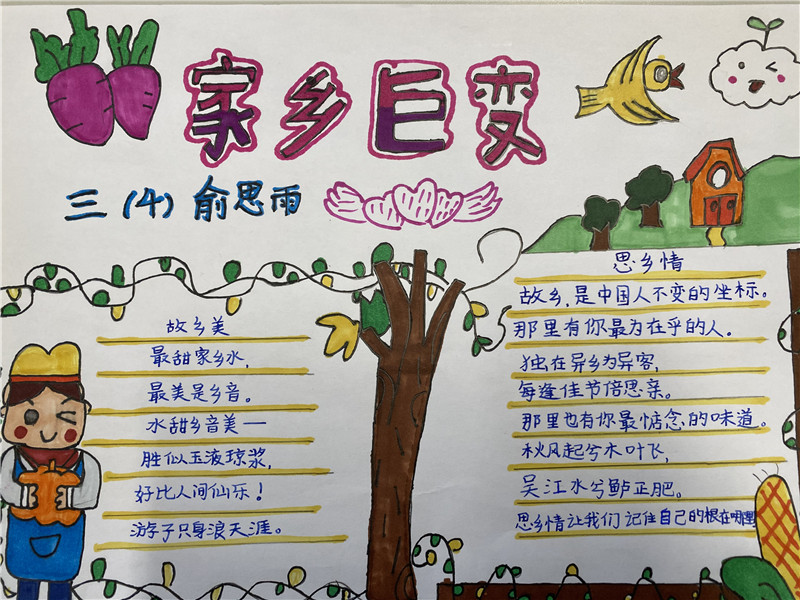 家乡巨变
三(4) 俞思雨
故乡美
最甜家乡水,
最美是乡音。
水甜乡音美一
胜似玉液琼浆,
好比人间仙乐!
游子只身浪天涯。
思乡情
故乡,是中国人不变的坐标。
那里有你最为在乎的人。
独在异乡为异客,
每逢佳节倍思亲。
那里也有你最惦念的味道。
秋风起兮木叶飞,
吴江水兮鲈正肥。
思乡情让我们记住自己的根在哪里